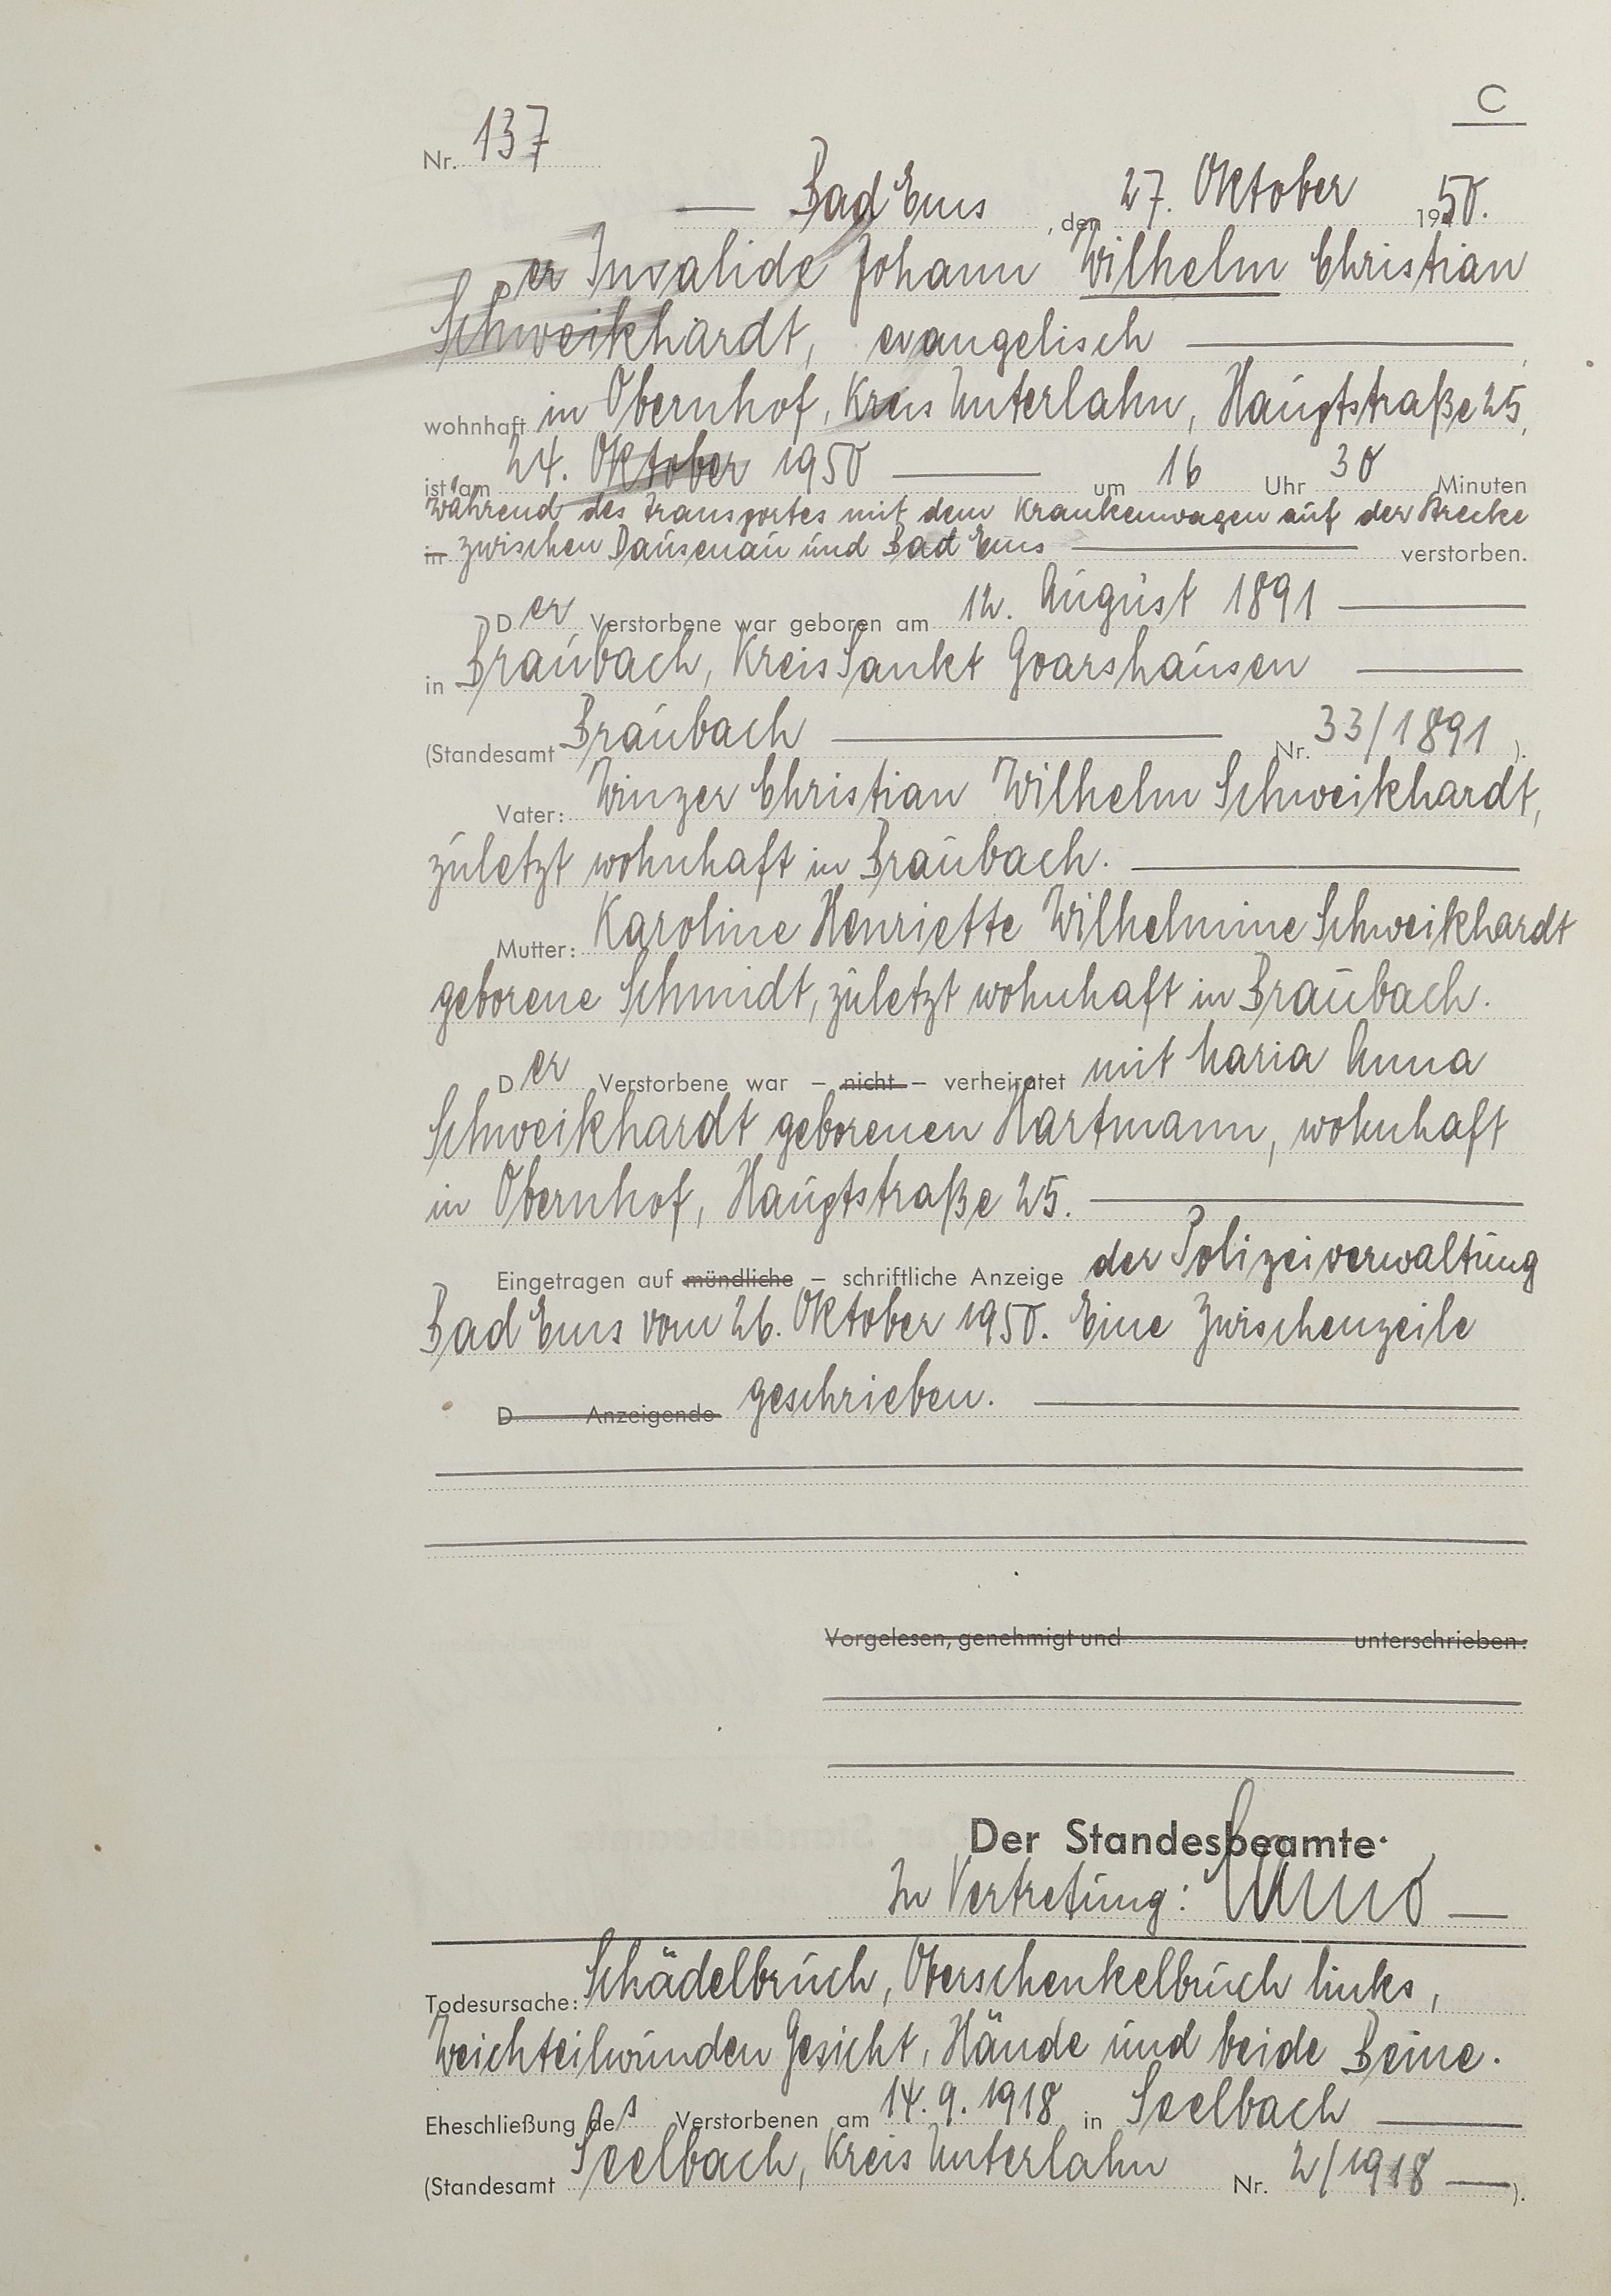 C
Nr. 137
Bad Ems, den 27. Oktober 1950.
Der Invalide Johann Wilhelm Christian
Schweikhardt, evangelisch
wohnhaft in Obernhof, Kreis Unterlahn, Hauptstraße 25,
ist am 24. Oktober 1950 um 16 Uhr 30 Minuten
während des Transportes mit dem Krankenwagen auf der Strecke
in zwischen Dausenau und Bad Ems verstorben.
Der Verstorbene war geboren am 12. August 1891
in Braubach, Kreis Sankt Goarshausen
(Standesamt Braubach Nr. 33/1891).
Vater: Winzer Christian Wilhelm Schweikhardt,
zuletzt wohnhaft in Braubach.
Mutter: Karoline Henriette Wilhelmine Schweikhardt
geborene Schmidt, zuletzt wohnhaft in Braubach.
Der Verstorbene war – nicht – verheiratet mit Maria Anna
Schweikhardt geborenen Hartmann, wohnhaft
in Obernhof, Hauptstraße 25.
Eingetragen auf mündliche – schriftliche Anzeige der Polizeiverwaltung
Bad Ems vom 26. Oktober 1950. Eine Zwischenzeile
D Anzeigende geschrieben.
Vorgelesen, genehmigt und unterschrieben.
Der Standesbeamte
In Vertretung:
Todesursache: Schädelbruch, Oberschenkelbruch links,
Weichteilwunden Gesicht, Hände und beide Beine.
Eheschließung des Verstorbenen am 14.9.1918 in Seelbach
(Standesamt Seelbach, Kreis Unterlahn Nr. 2/1918).